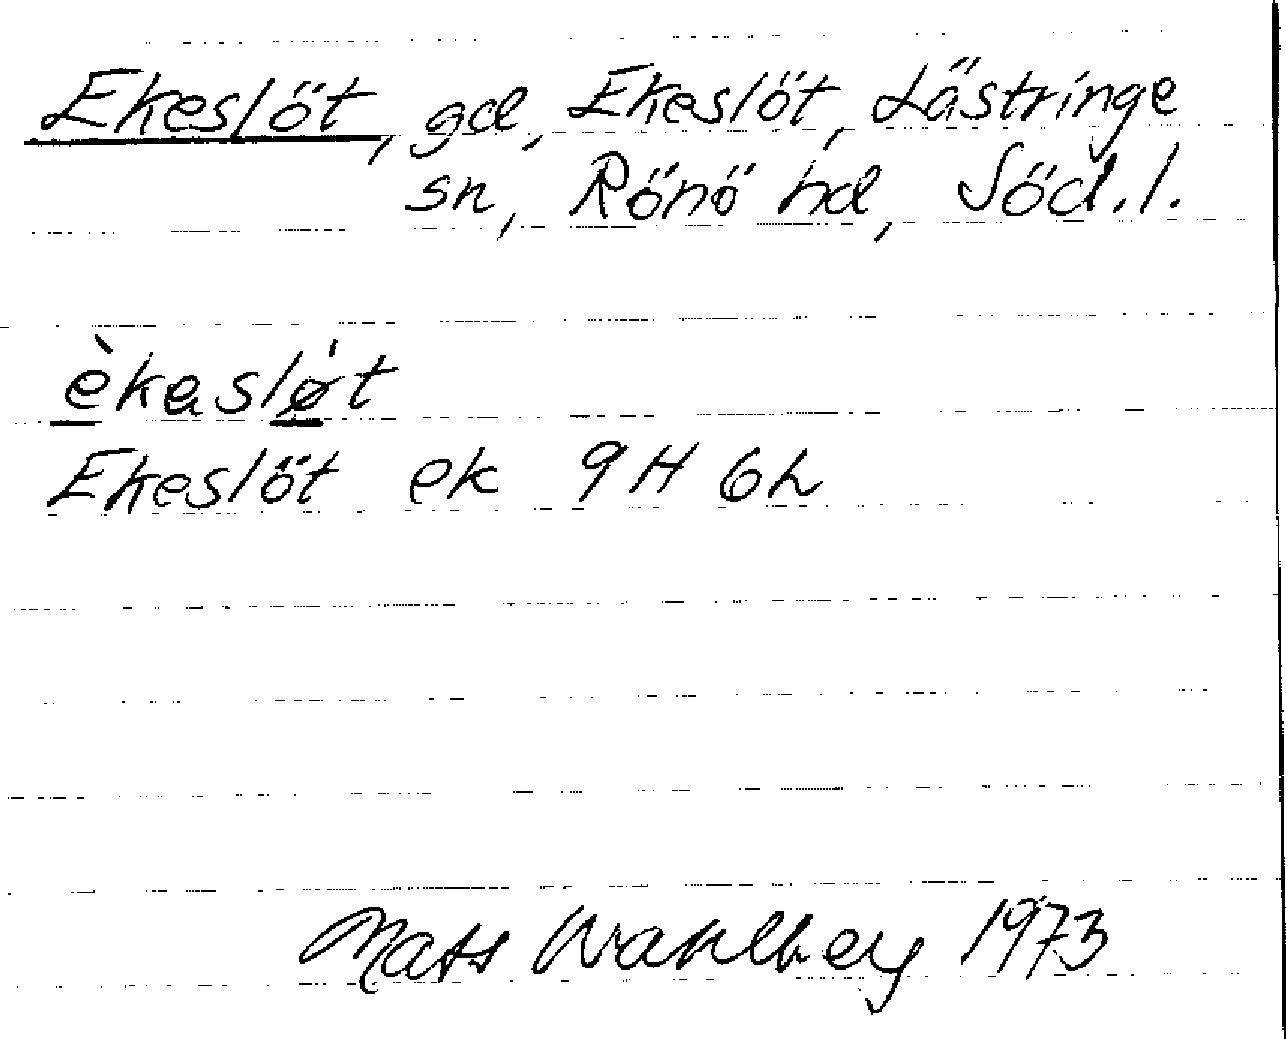 Ekeslöt, gd, Ekeslöt, Lästringe
sn, Rönö hd, Söd.l.
èkeslø̍t
Ekeslöt ek 9H 6h
Mats Wahlberg 1973